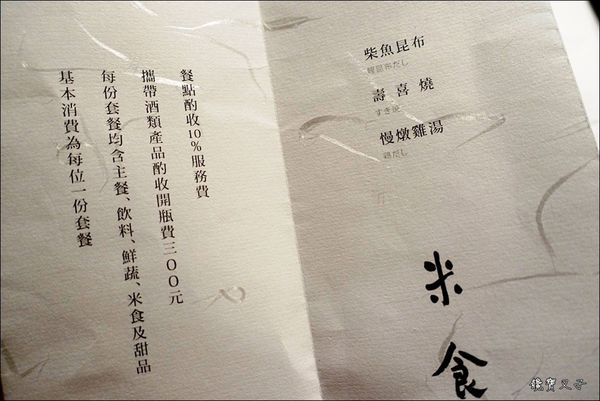 柴魚昆布
鰹昆布だし
壽喜燒
すき焼
慢燉雞湯
鶏だし
米食
餐點酌收10%服務費
攜帶酒類產品酌收開瓶費三００元
每份套餐均含主餐、飲料、鮮蔬、米食及甜品
基本消費為每位一份套餐